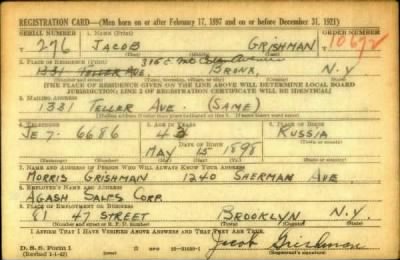 REGISTRATION CARD—(Men born on or after February 17, 1897 and on or before December 31, 1921)
SERIAL NUMBER 1. NAME (Print) ORDER NUMBER
T 276 JACOB GRISHMAN 10672
(First) (Middle) (Last)
2. PLACE OF RESIDENCE (Print) 316 E. Mt Eden Avenue
1331 TELLER AVE. BRONX, N.Y
(Number and street) (Town, township, village, or city) (County) (State)
[THE PLACE OF RESIDENCE GIVEN ON THE LINE ABOVE WILL DETERMINE LOCAL BOARD
JURISDICTION; LINE 2 OF REGISTRATION CERTIFICATE WILL BE IDENTICAL]
3. MAILING ADDRESS
1331 TELLER AVE. (SAME)
4. TELEPHONE 5. AGE IN YEARS 6. PLACE OF BIRTH
JE 7- 6686 43
DATE OF BIRTH
MAY 15 1898 RUSSIA
(Exchange) (Number) (Mo.) (Day) (Yr.) (State or country)
7. NAME AND ADDRESS OF PERSON WHO WILL ALWAYS KNOW YOUR ADDRESS
MORRIS GRISHMAN 1240 SHERMAN AVE
8. EMPLOYER'S NAME AND ADDRESS
AGASH SALES CORP.
9. PLACE OF EMPLOYMENT OR BUSINESS
81 47 STREET BROOKLYN N.Y.
(Number and street or R. F. D. number) (Town) (County) (State)
I AFFIRM THAT I HAVE VERIFIED ABOVE ANSWERS AND THAT THEY ARE TRUE.
D. S. S. Form 1
(Revised 1-1-42) (over) Jacob Grishman
(Registrant's signature)